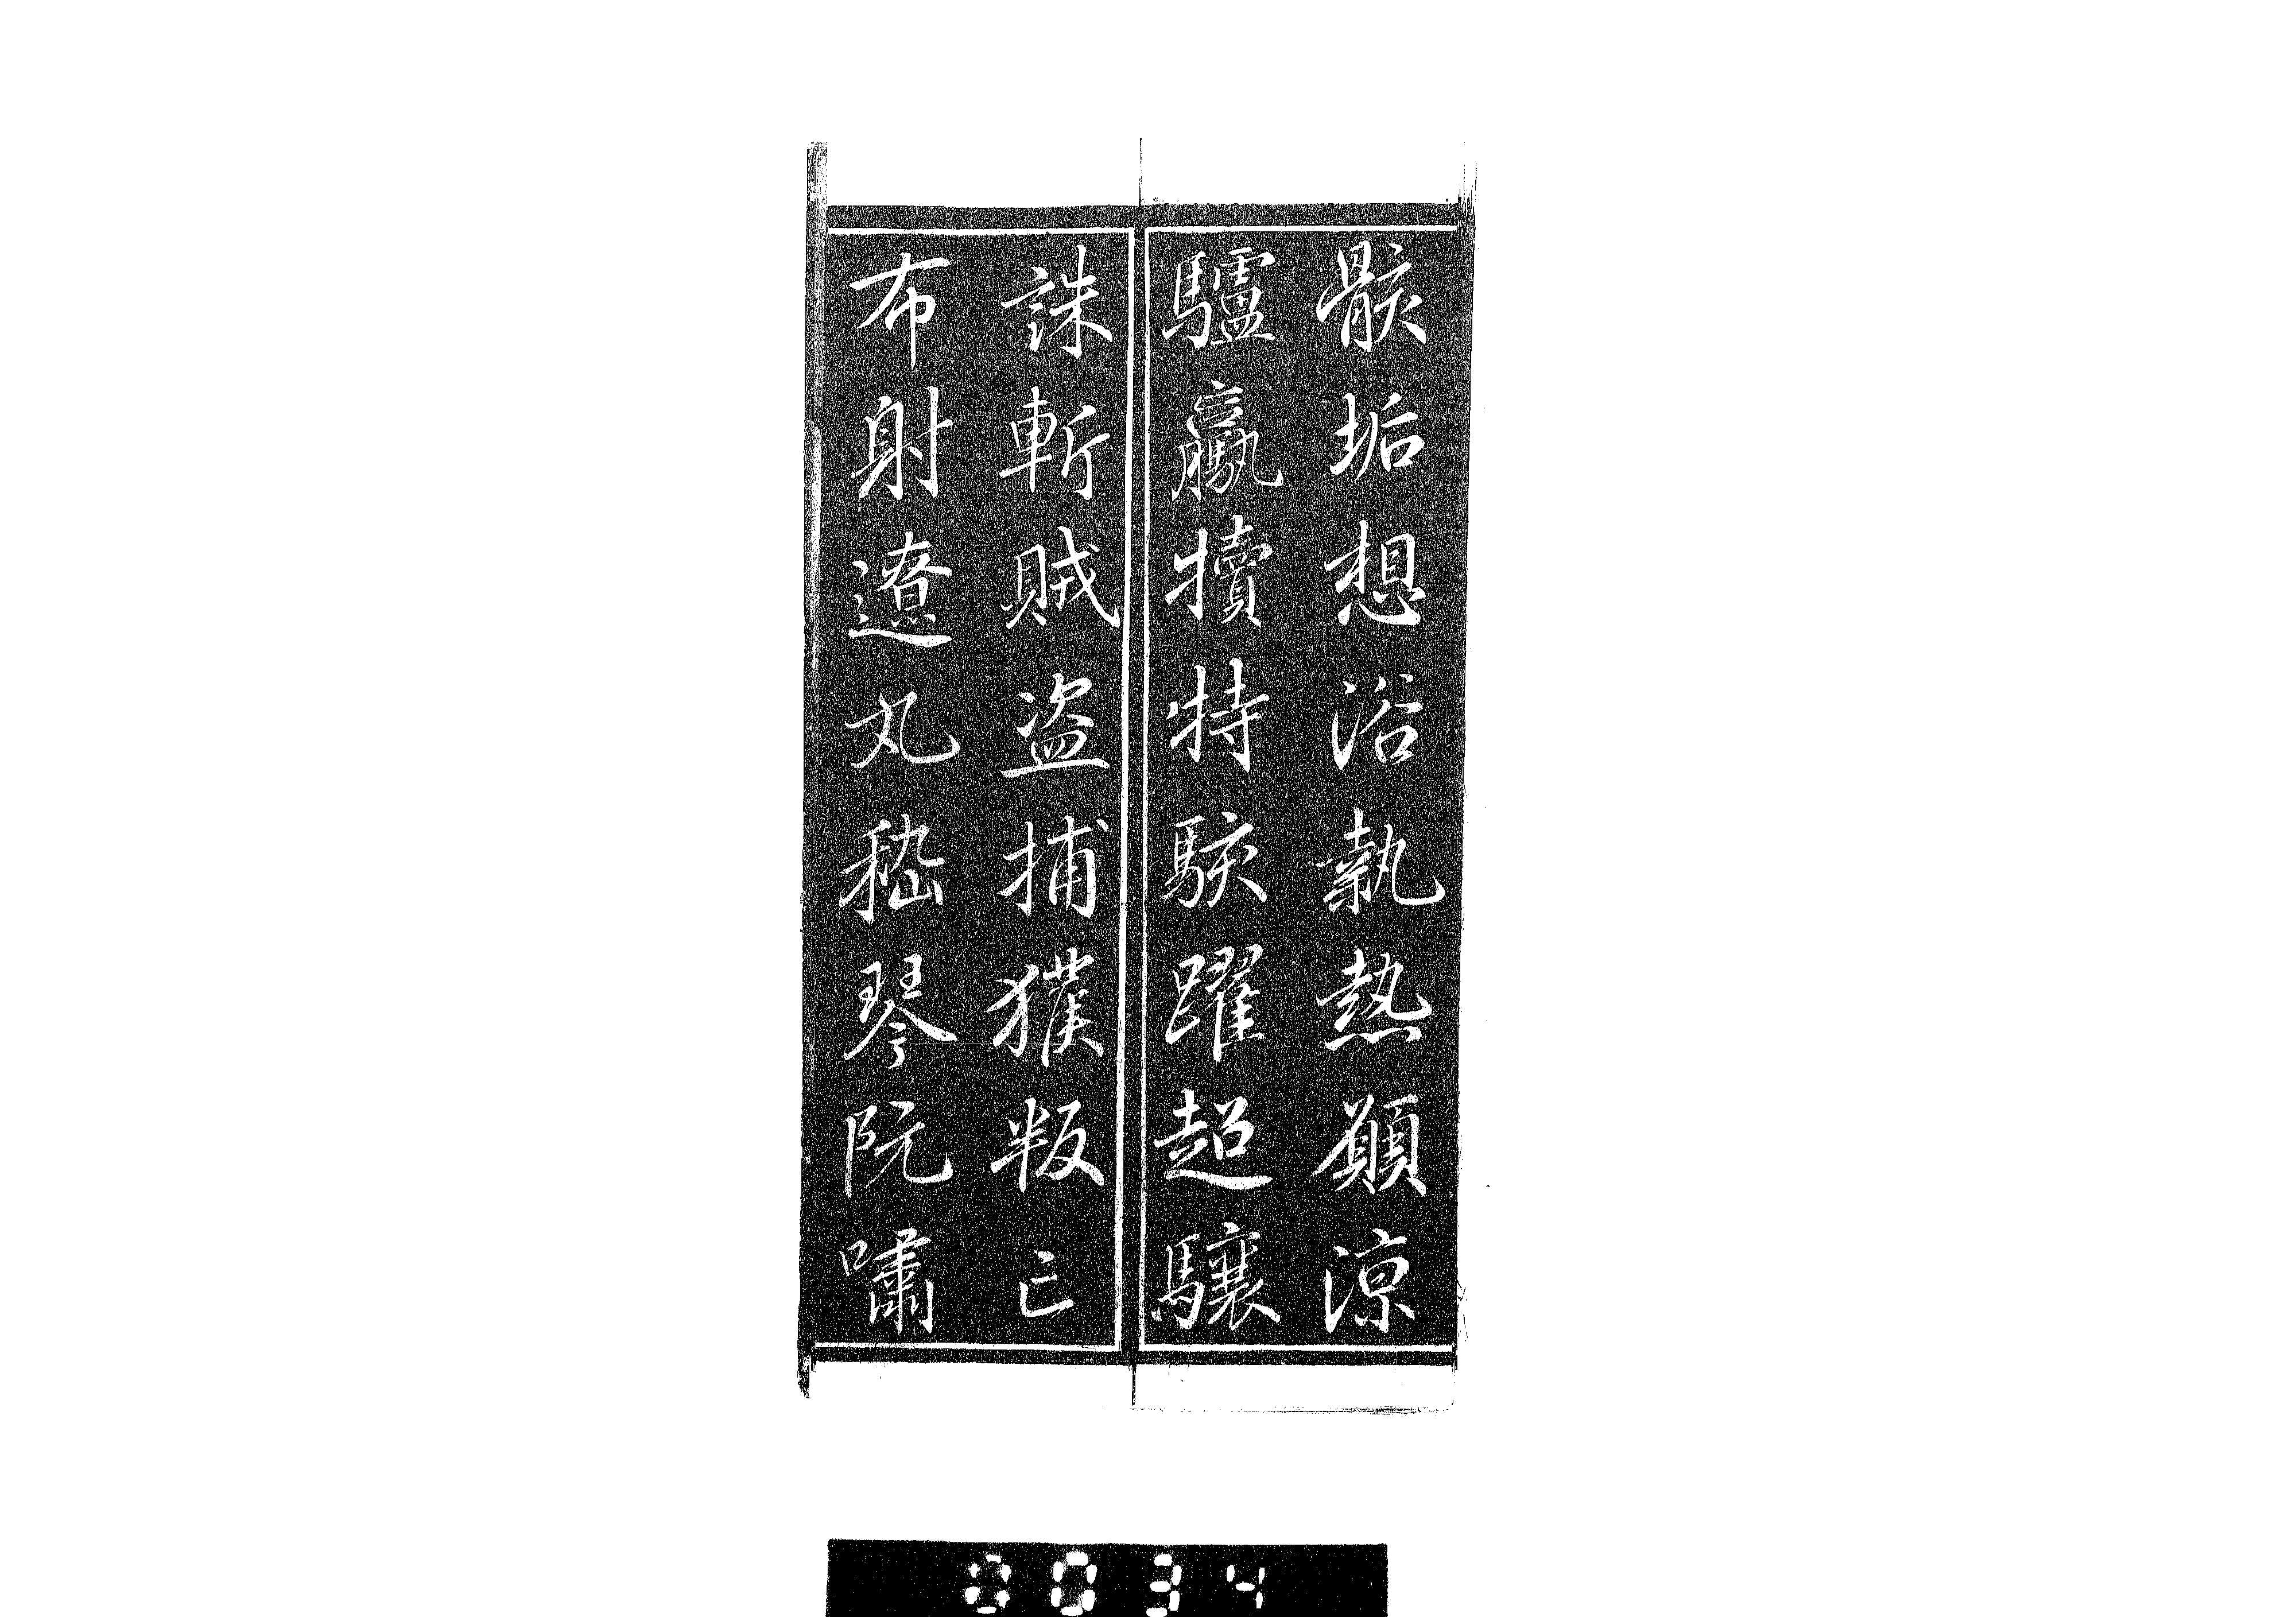 骸垢想浴執熱願涼
驢騾犢特駭躍超驤
誅斬賊盗捕獲叛亡
布射遼丸嵇琴阮嘯
0034